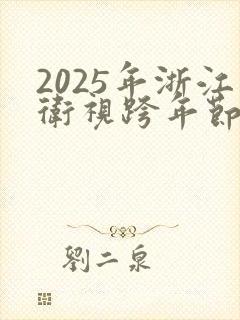 2025年浙江
衛視跨年節
劉二泉